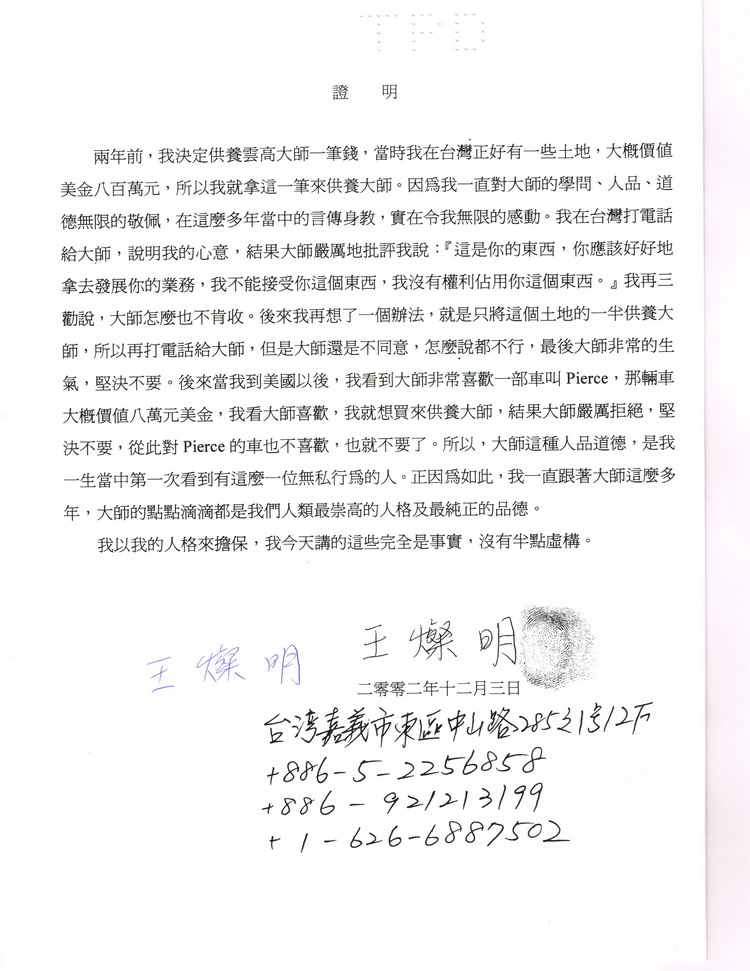 TPD
證 明
兩年前，我決定供養雲高大師一筆錢，當時我在台灣正好有一些土地，大概價值
美金八百萬元，所以我就拿這一筆來供養大師。因為我一直對大師的學問、人品、道
德無限的敬佩，在這麼多年當中的言傳身教，實在令我無限的感動。我在台灣打電話
給大師，說明我的心意，結果大師嚴厲地批評我說：『這是你的東西，你應該好好地
拿去發展你的業務，我不能接受你這個東西，我沒有權利佔用你這個東西。』我再三
勸說，大師怎麼也不肯收。後來我再想了一個辦法，就是只將這個土地的一半供養大
師，所以再打電話給大師，但是大師還是不同意，怎麼說都不行，最後大師非常的生
氣，堅決不要。後來當我到美國以後，我看到大師非常喜歡一部車叫 Pierce，那輛車
大概價值八萬元美金，我看大師喜歡，我就想買來供養大師，結果大師嚴厲拒絕，堅
決不要，從此對 Pierce 的車也不喜歡，也就不要了。所以，大師這種人品道德，是我
一生當中第一次看到有這麼一位無私行為的人。正因為如此，我一直跟著大師這麼多
年，大師的點點滴滴都是我們人類最崇高的人格及最純正的品德。
我以我的人格來擔保，我今天講的這些完全是事實，沒有半點虛構。
王燦明
王燦明
二零零二年十二月三日
台湾嘉義市東區中山路285之1号12F
+886-5-2256858
+886-921213199
+1-626-6887502